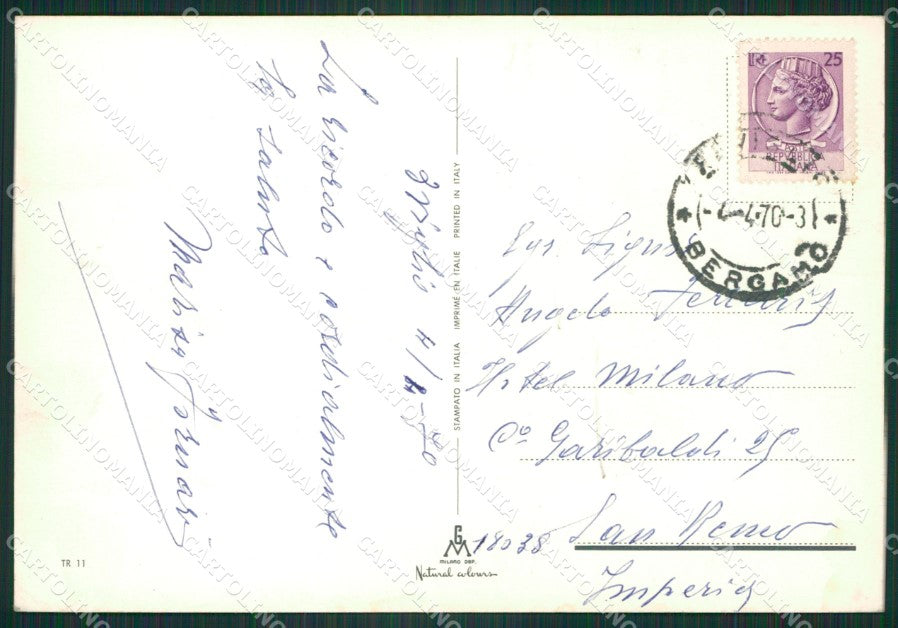 Treviglio 4/4-70
La ricordo e cordialmente
La saluto
Maria
STAMPATO IN ITALIA IMPRIMÉ EN ITALIE PRINTED IN ITALY
GM
MILANO DEP.
Natural colours
TR 11
£ 25
REPUBBLICA
ITALIANA
-4-4-70-
BERGAMO
Egr. Signor
Angelo Ferraris
Hotel Milano
Co Garibaldi 25
18038 San Remo
Imperia
CARTOLINOMANIA